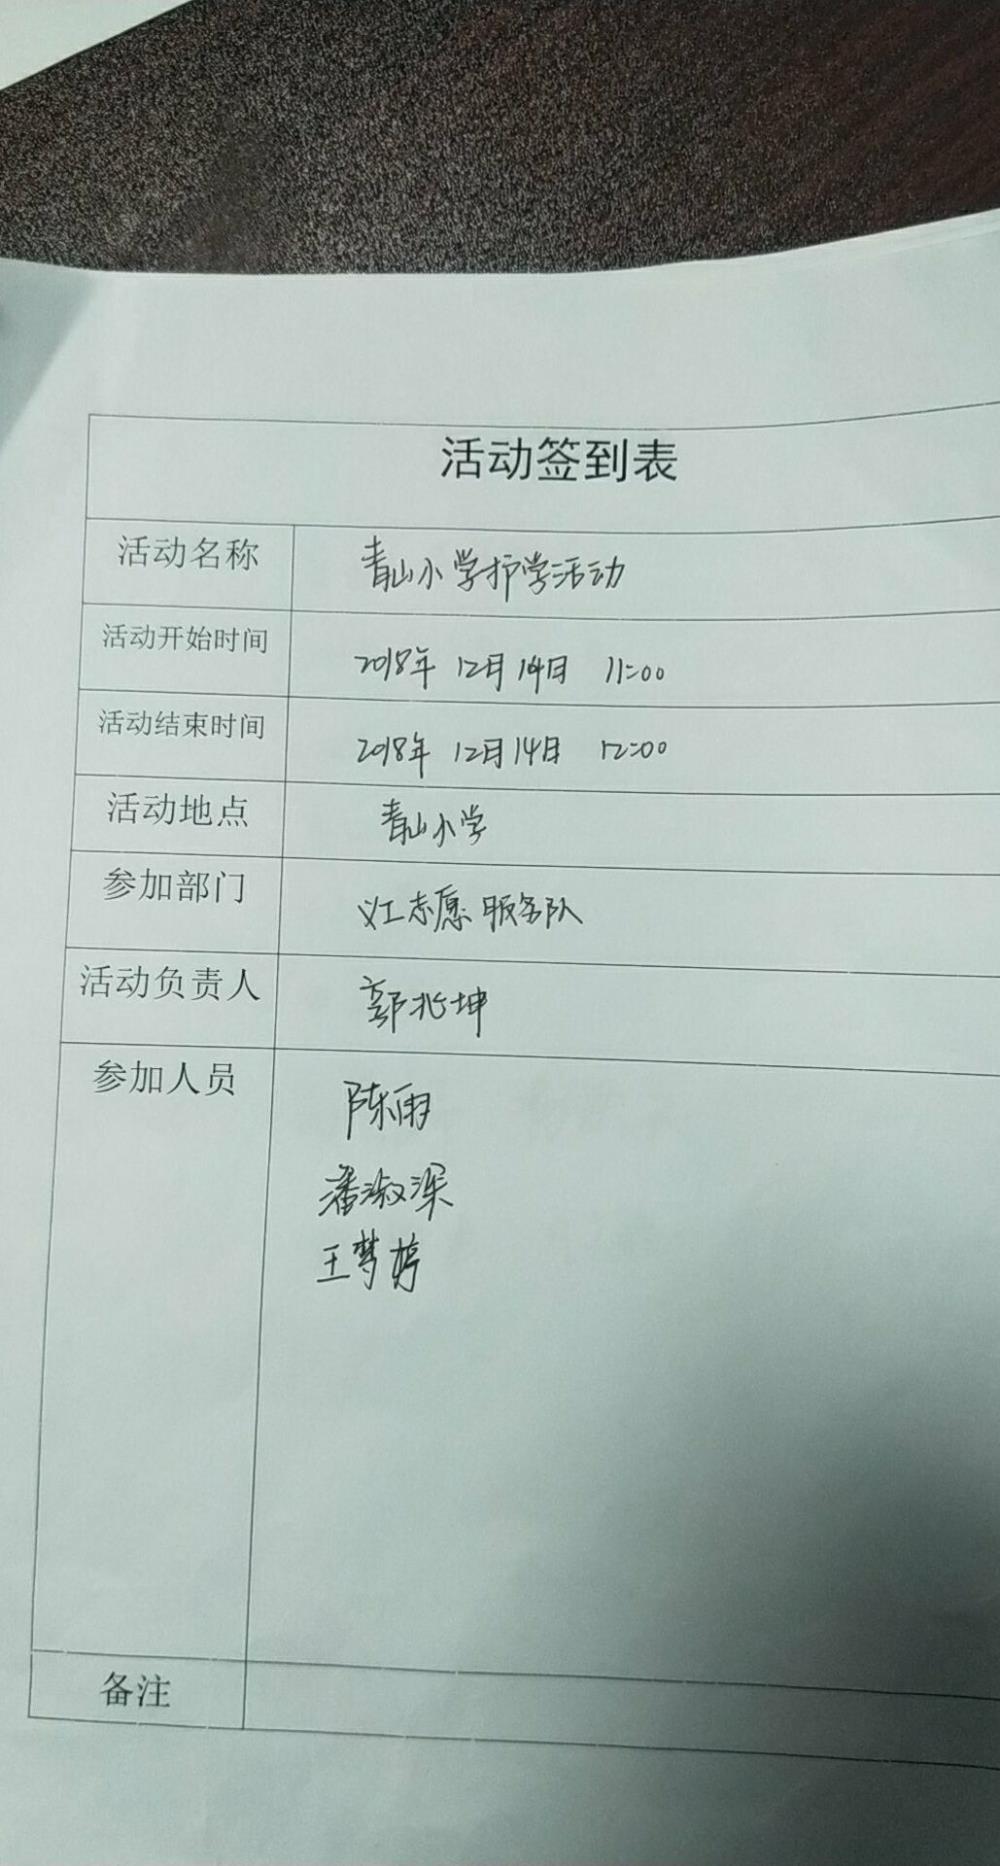 活动签到表
活动名称 青山小学护学活动
活动开始时间 2018年 12月14日 11:00
活动结束时间 2018年 12月14日 12:00
活动地点 青山小学
参加部门 义工志愿服务队
活动负责人 郭兆坤
参加人员 陈雨
潘淑深
王梦婷
备注